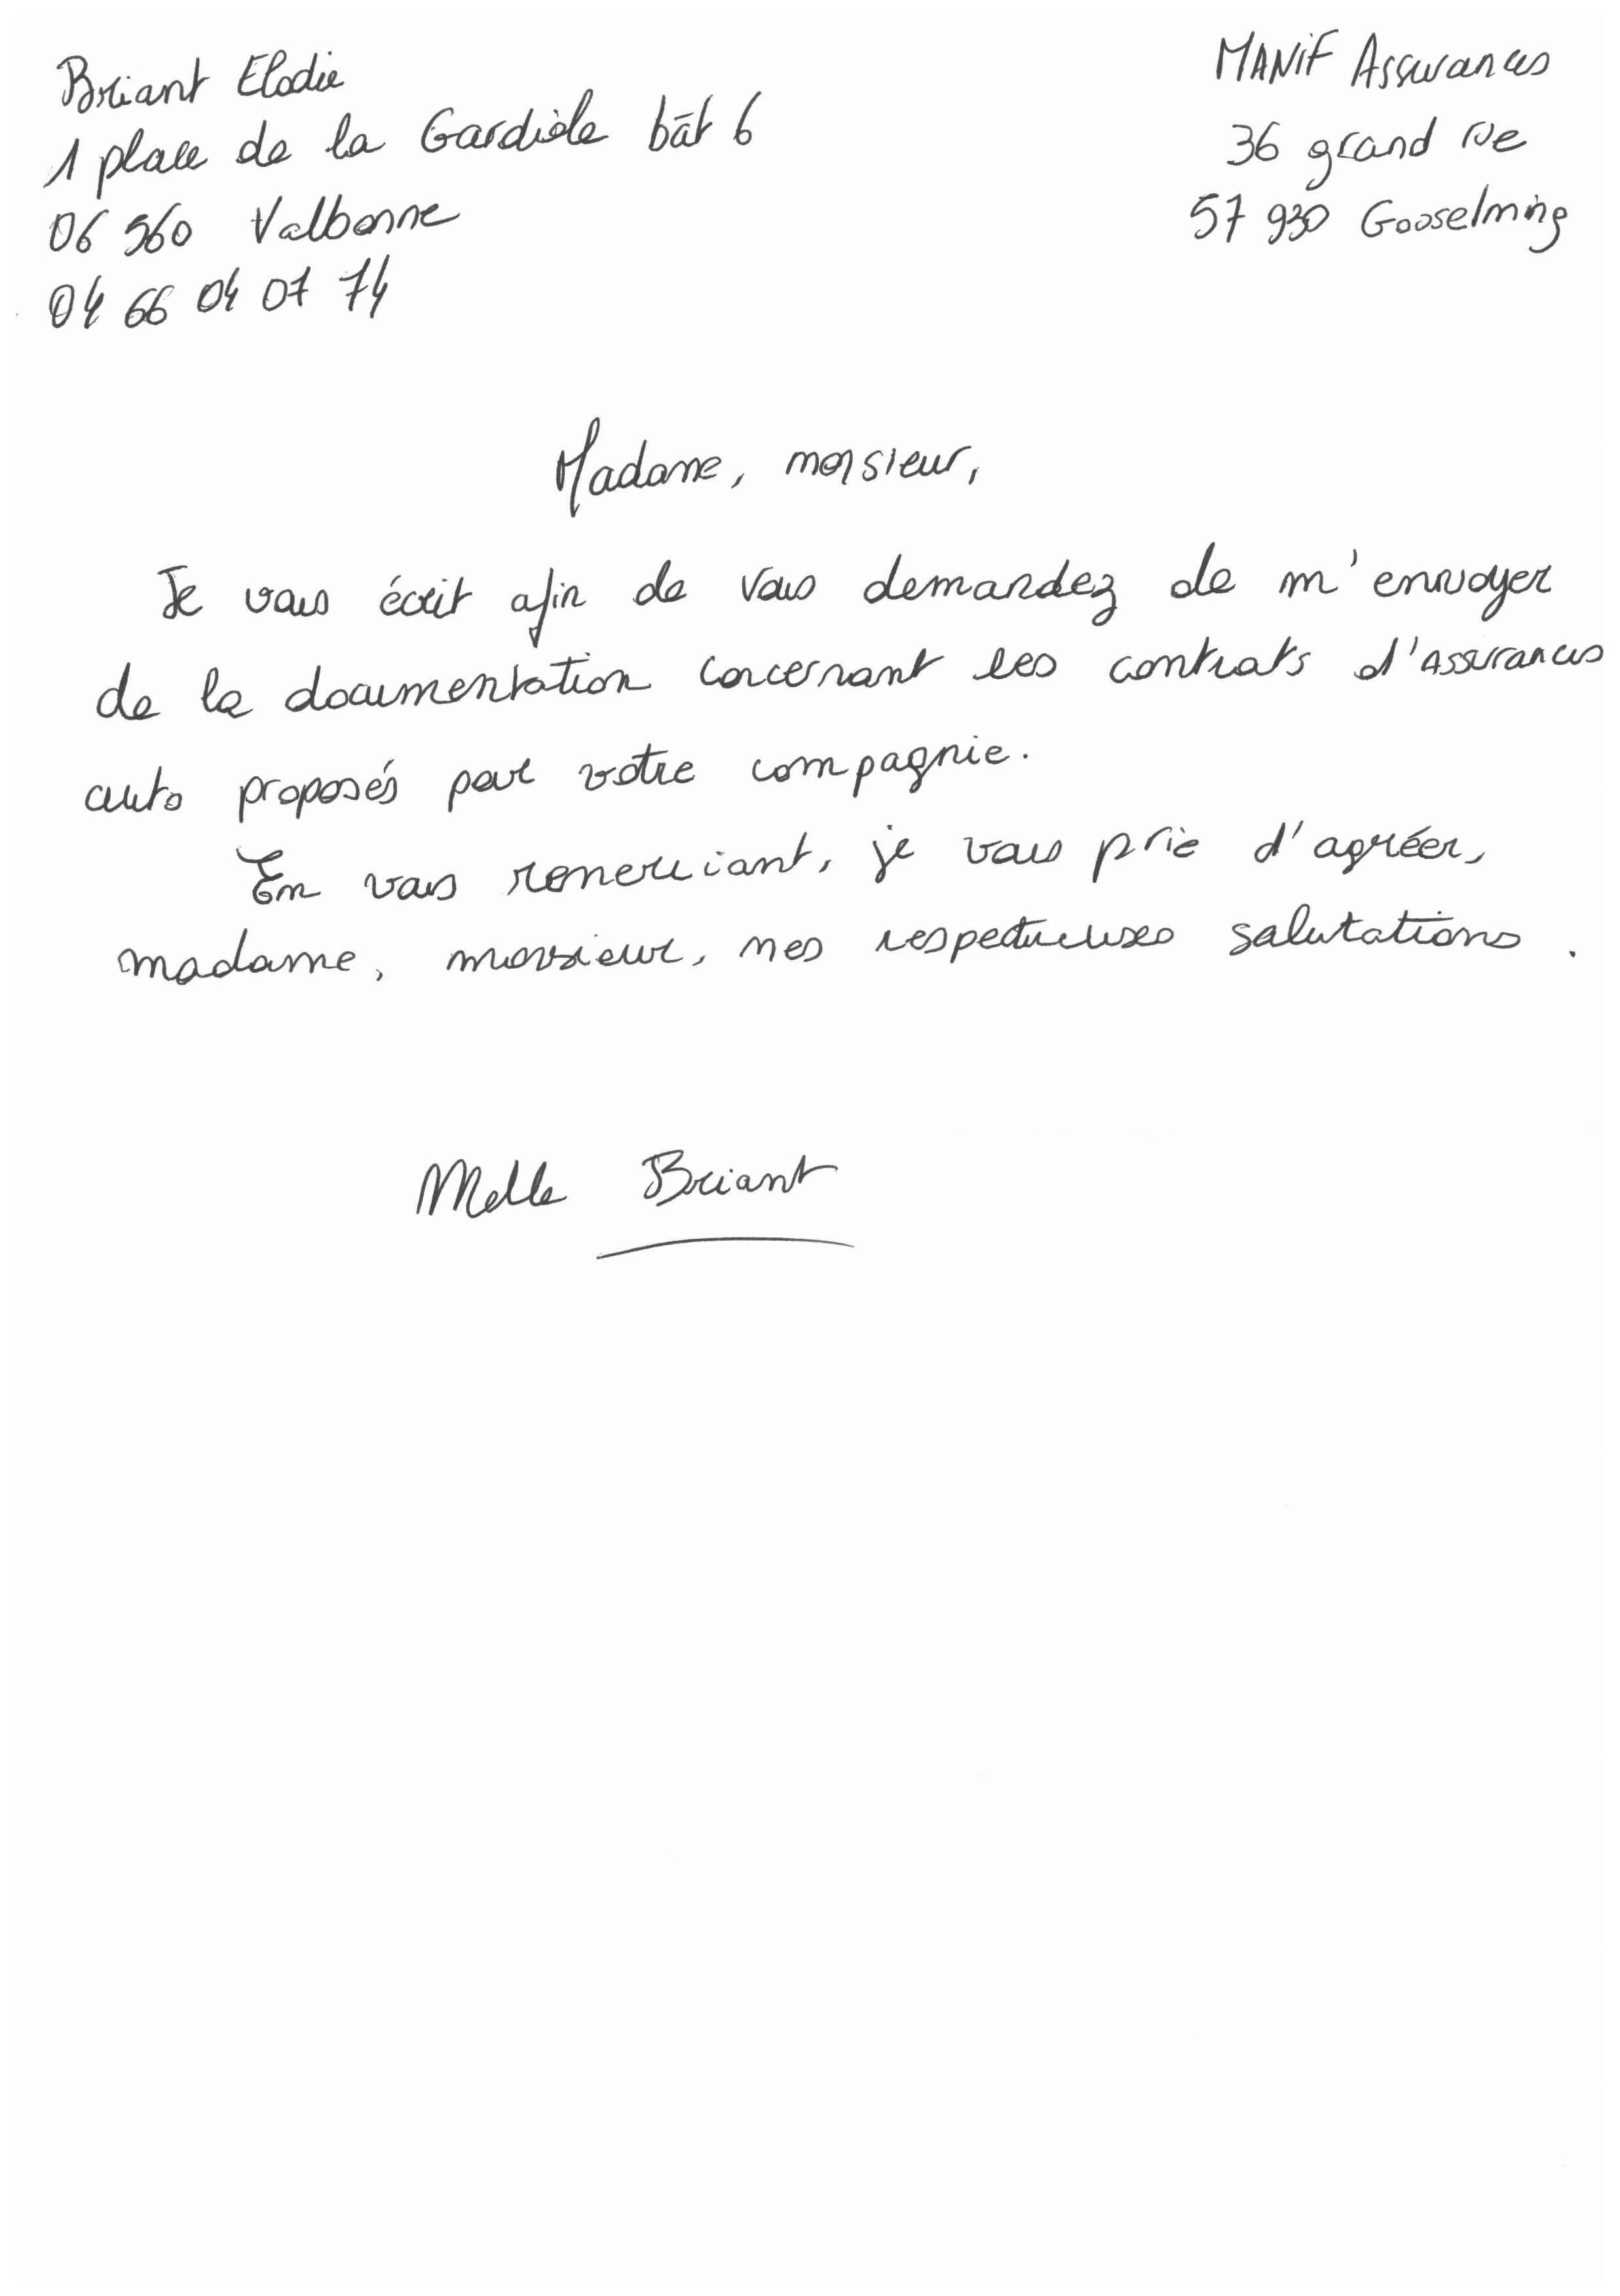 Briant Elodie
1 place de la Gardiole bât 6
06 560 Valbonne
04 66 04 07 74
MANiF Assurances
36 grand rue
57 930 Gosselming
Madame, monsieur,
Je vous écrit afin de vous demandez de m'envoyer
de la documentation concernant les contrats d'Assurances
auto proposés par votre compagnie.
En vous remerciant, je vous prie d'agréer,
madame, monsieur, mes respectueuses salutations.
Melle Briant